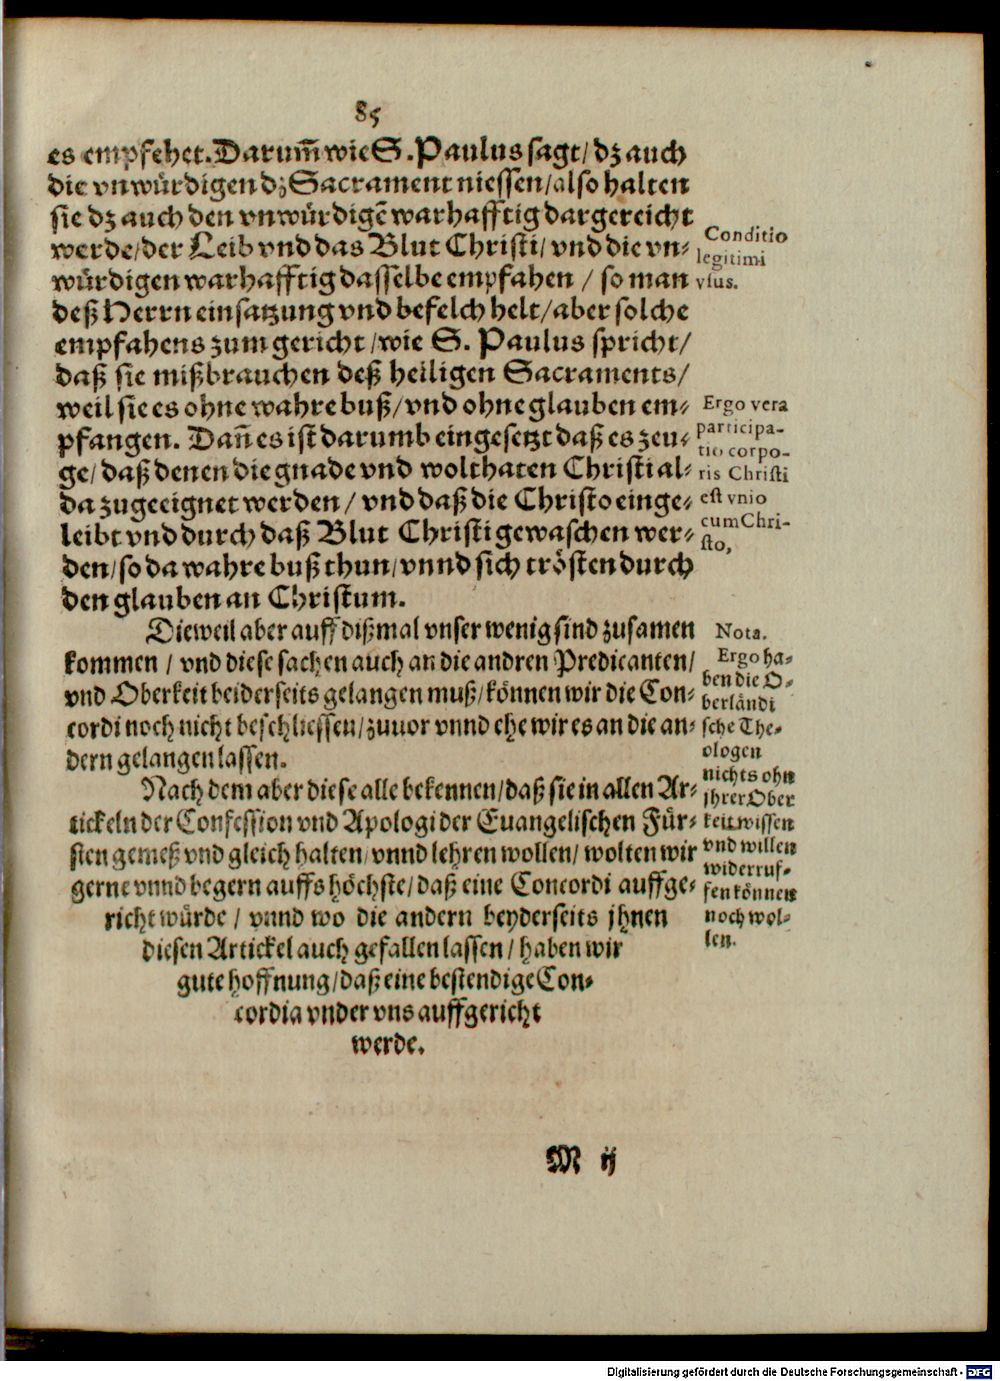 85
es empfehet. Darum̃ wie S. Paulus sagt/ dz auch
die vnwürdigen dz Sacrament niessen/also halten
sie dz auch den vnwürdigẽ warhafftig dargereicht
werde/der Leib vnd das Blut Christi/ vnd die vn-
würdigen warhafftig dasselbe empfahen / so man
deß Herrn einsatzung vnd befelch helt/aber solche
empfahens zum gericht /wie S. Paulus spricht/
daß sie mißbrauchen deß heiligen Sacraments/
weil sie es ohne wahre buß/ vnd ohne glauben em-
pfangen. Dañ es ist darumb eingesetzt daß es zeu-
ge/ daß denen die gnade vnd wolthaten Christi al-
da zugeeignet werden / vnd daß die Christo einge-
leibt vnd durch daß Blut Christi gewaschen wer-
den/so da wahre buß thun/ vnnd sich trösten durch
den glauben an Christum.
Conditio
legitimi
vsus.
Ergo vera
participa-
tio corpo-
ris Christi
est vnio
cum Chri-
sto,
Dieweil aber auff dißmal vnser wenig sind zusamen
kommen / vnd diese sachen auch an die andren Predicanten/
vnd Oberkeit beiderseits gelangen muß/können wir die Con-
cordi noch nicht beschliessen/zuuor vnnd ehe wir es an die an-
dern gelangen lassen.
Nach dem aber diese alle bekennen/daß sie in allen Ar-
tickeln der Confession vnd Apologi der Euangelischen Für-
sten gemeß vnd gleich halten/ vnnd lehren wollen/ wolten wir
gerne vnnd begern auffs höchste/ daß eine Concordi auffge-
richt würde / vnnd wo die andern beyderseits jhnen
diesen Artickel auch gefallen lassen / haben wir
gute hoffnung/daß eine bestendige Con-
cordia vnder vns auffgericht
werde.
Nota.
Ergo ha-
ben die O-
berländi
sche The-
ologen
nichts ohn
jhrer Ober
keit wissen
vnd willen
widerruf-
fen können
noch wol-
len.
M ij
Digitalisierung gefördert durch die Deutsche Forschungsgemeinschaft - DFG